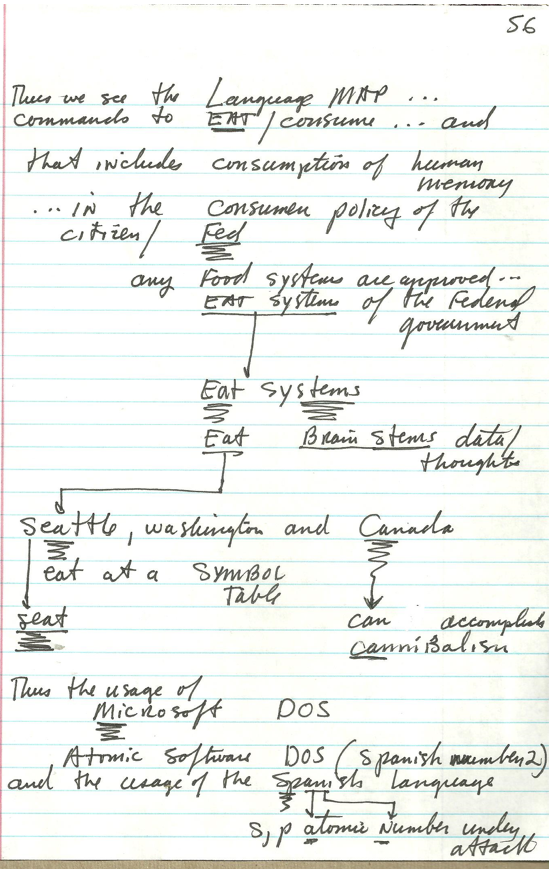 56
Thus we see the Language MAP ...
commands to EAT / consume ... and
that includes consumption of human
memory
... in the consumer policy of the
citizen / Fed
any Food systems are approved...
EAT systems of the Federal
government
Eat Systems
Eat Brain Stems data/
thoughts
Seattle, Washington and Canada
eat at a SYMBOL
Table
seat can accomplish
canniBalism
Thus the usage of
Microsoft DOS
Atomic Software DOS (Spanish number 2)
and the usage of the Spanish Language
s, p atomic Number under
attack